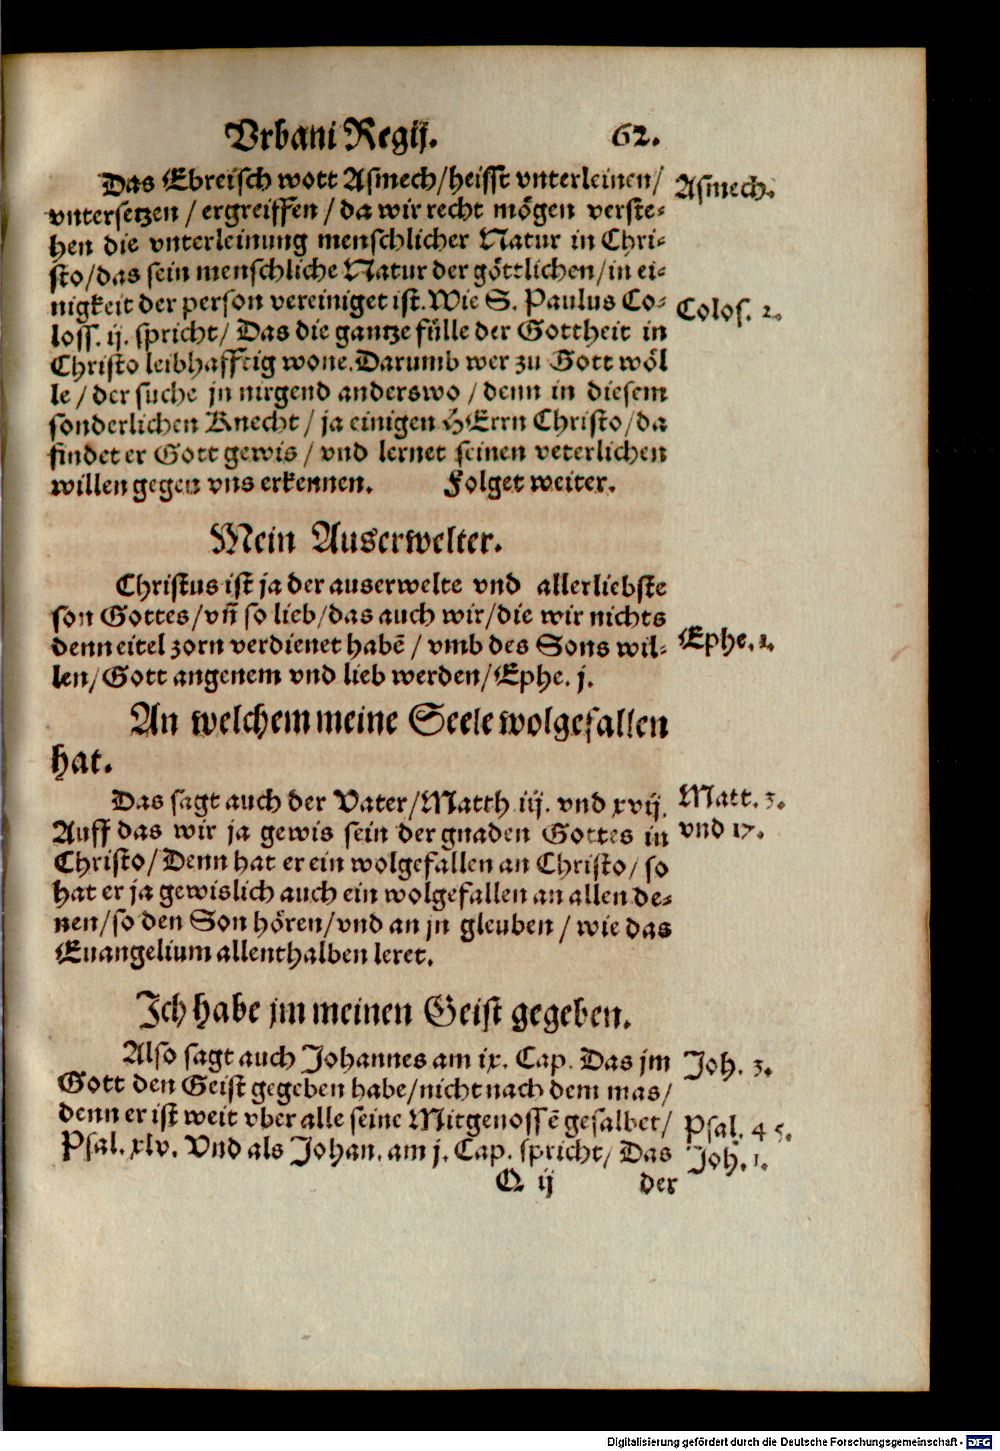 Vrbani Regij. 62.
Das Ebreisch wott Asmech/heisst vnterleinen/ Asmech.
vntersetzen / ergreiffen / da wir recht mögen verste-
hen die vnterleinung menschlicher Natur in Chri-
sto/das sein menschliche Natur der göttlichen/in ei-
nigkeit der person vereiniget ist. Wie S. Paulus Co- Colos. 2.
loss. ij. spricht/ Das die gantze fülle der Gottheit in
Christo leibhafftig wone. Darumb wer zu Gott wöl
le / der suche jn nirgend anderswo / denn in diesem
sonderlichen Knecht / ja einigen HErrn Christo/da
findet er Gott gewis / vnd lernet seinen veterlichen
willen gegen vns erkennen. Folget weiter.
Mein Auserwelter.
Christus ist ja der auserwelte vnd allerliebste
son Gottes/vñ so lieb/das auch wir/die wir nichts
denn eitel zorn verdienet habē / vmb des Sons wil- Ephe. 1.
len/Gott angenem vnd lieb werden/Ephe. j.
An welchem meine Seele wolgefallen
hat.
Das sagt auch der Vater/Matth iij. vnd xvij. Matt. 3.
Auff das wir ja gewis sein der gnaden Gottes in vnd 17.
Christo/Denn hat er ein wolgefallen an Christo/ so
hat er ja gewislich auch ein wolgefallen an allen de-
nen/so den Son hören/vnd an jn gleuben / wie das
Euangelium allenthalben leret.
Ich habe jm meinen Geist gegeben.
Also sagt auch Johannes am ix. Cap. Das jm Joh. 3.
Gott den Geist gegeben habe/nicht nach dem mas/
denn er ist weit vber alle seine Mitgenossē gesalbet/ Psal. 45.
Psal. xlv. Vnd als Johan. am j. Cap. spricht/ Das Joh. 1.
Q ij der
Digitalisierung gefördert durch die Deutsche Forschungsgemeinschaft - DFG